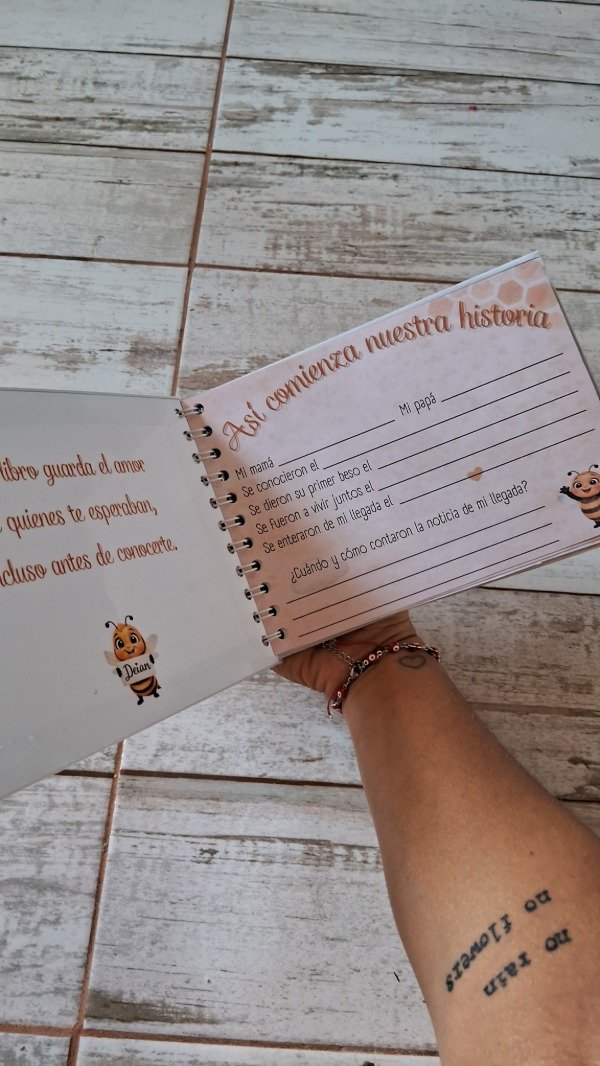 libro guarda el amor
quienes te esperaban,
incluso antes de conocerte.
Deian
Así comienza nuestra historia
Mi mamá Mi papá
Se conocieron el
Se dieron su primer beso el
Se fueron a vivir juntos el
Se enteraron de mi llegada el
¿Cuándo y cómo contaron la noticia de mi llegada?
no rain
no flowers